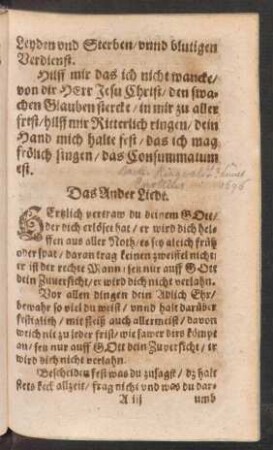 Leyden vnd Sterben/ vnnd blutigen
Verdienst.
Hilff mir das ich nicht wancke/
von dir HErr Jesu Christ/ den swa-
chen Glauben stercke/ in mir zu aller
frist/ hilff mir Ritterlich ringen/ dein
Hand mich halte fest/ das ich mag
frölich singen/ das Consummatum
est.
Das Ander Liedt.
HErtzlich vertraw du deinem GOtt/
der dich erlöset hat/ er wird dich hel-
ffen aus aller Noth/ es sey gleich früh
oder spat/ daran trag keinen zweiffel nicht:
er ist der rechte Mann: sey nur auff GOtt
dein Zuuersicht/ er wird dich nicht verlahn.
Vor allen dingen dein Adlich Ehr/
bewahr so viel du weist/ vnnd halt darüber
festiglich/ mit fleiß auch allermeist/ davon
weich nit zu jeder frist/ wie sawer ders kömpt
an/ sey nur auff GOtt dein Zuversicht/ er
wird dich nicht verlahn.
Bescheiden fest was du zusagst/ dz halt
stets keck allzeit/ frag nicht vnd was du dar-
A iij umb